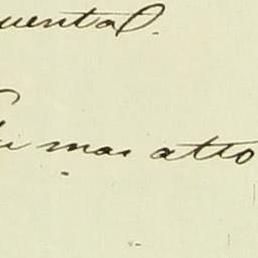 uental.
i mas atto